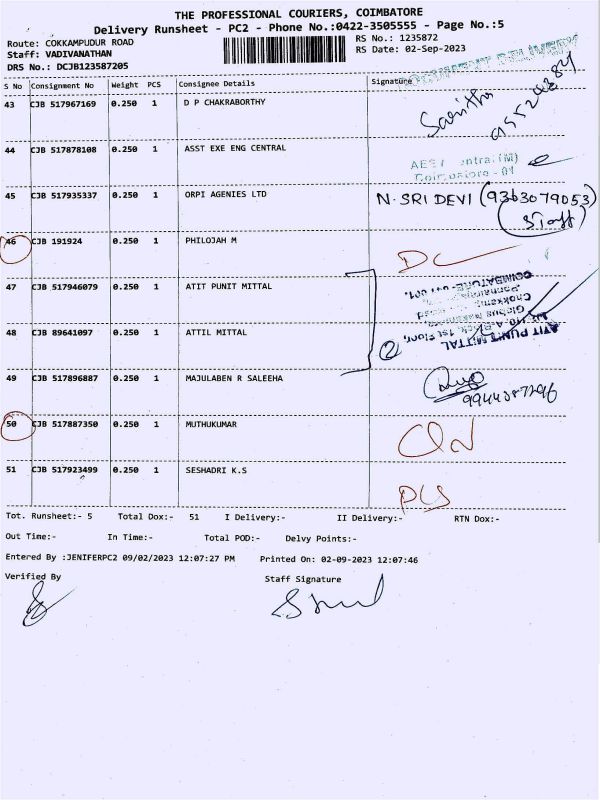 THE PROFESSIONAL COURIERS, COIMBATORE
Delivery Runsheet - PC2 - Phone No.:0422-3505555 - Page No.:5
Route: COKKAMPUDUR ROAD
RS No.: 1235872
Staff: VADIVANATHAN
RS Date: 02-Sep-2023
DRS No.: DCJB123587205
S No Consignment No Weight PCS Consignee Details Signature
43 CJB 517967169 0.250 1 D P CHAKRABORTHY
44 CJB 517878108 0.250 1 ASST EXE ENG CENTRAL
45 CJB 517935337 0.250 1 ORPI AGENIES LTD N. SRI DEVI (9363079053)
(Staff)
46 CJB 191924 0.250 1 PHILOJAH M DL
47 CJB 517946079 0.250 1 ATIT PUNIT MITTAL
48 CJB 89641097 0.250 1 ATTIL MITTAL
ATIT PUNIT MITTAL
②
49 CJB 517896887 0.250 1 MAJULABEN R SALEEHA
50 CJB 517887350 0.250 1 MUTHUKUMAR
51 CJB 517923499 0.250 1 SESHADRI K.S
Tot. Runsheet:- 5 Total Dox:- 51 I Delivery:- II Delivery:- RTN Dox:-
Out Time:- In Time:- Total POD:- Delvy Points:-
Entered By :JENIFERPC2 09/02/2023 12:07:27 PM Printed On: 02-09-2023 12:07:46
Verified By Staff Signature